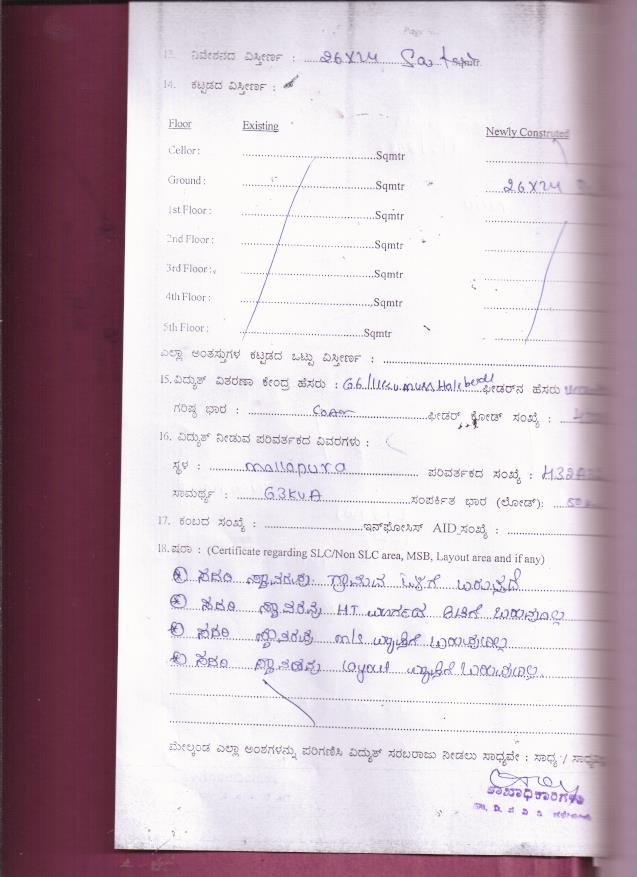 13. ನಿವೇಶನದ ವಿಸ್ತೀರ್ಣ : 26X24 Sqmtr
14. ಕಟ್ಟಡದ ವಿಸ್ತೀರ್ಣ :
Floor Existing Newly Constructed
Cellor : Sqmtr
Ground : Sqmtr 26X24
1st Floor : Sqmtr
2nd Floor : Sqmtr
3rd Floor : Sqmtr
4th Floor : Sqmtr
5th Floor : Sqmtr
ಎಲ್ಲಾ ಅಂತಸ್ತುಗಳ ಕಟ್ಟಡದ ಒಟ್ಟು ವಿಸ್ತೀರ್ಣ :
15. ವಿದ್ಯುತ್ ವಿತರಣಾ ಕೇಂದ್ರ ಹೆಸರು : ಫೀಡರ್‌ನ ಹೆಸರು
ಗರಿಷ್ಠ ಭಾರ : ಫೀಡರ್ ಕೋಡ್ ಸಂಖ್ಯೆ :
16. ವಿದ್ಯುತ್ ನೀಡುವ ಪರಿವರ್ತಕದ ವಿವರಗಳು :
ಸ್ಥಳ : mallapura ಪರಿವರ್ತಕದ ಸಂಖ್ಯೆ :
ಸಾಮರ್ಥ್ಯ : 63KVA ಸಂಪರ್ಕಿತ ಭಾರ (ಲೋಡ್):
17. ಕಂಬದ ಸಂಖ್ಯೆ : ಇನ್‌ಫೋಸಿಸ್ AID ಸಂಖ್ಯೆ :
18. ಷರಾ : (Certificate regarding SLC/Non SLC area, MSB, Layout area and if any)
ಸದರಿ ಸ್ಥಾವರವು ಗ್ರಾಮದ ಬರುತ್ತದೆ
ಸದರಿ ಸ್ಥಾವರವು HT ಮಾರ್ಗದ ಕೆಳಗೆ ಬರುವುದಿಲ್ಲ
ಸದರಿ ಸ್ಥಾವರವು m/s ವ್ಯಾಪ್ತಿಗೆ ಬರುವುದಿಲ್ಲ
ಸದರಿ ಸ್ಥಾವರವು Layout ವ್ಯಾಪ್ತಿಗೆ ಬರುವುದಿಲ್ಲ.
ಮೇಲ್ಕಂಡ ಎಲ್ಲಾ ಅಂಶಗಳನ್ನು ಪರಿಗಣಿಸಿ ವಿದ್ಯುತ್ ಸರಬರಾಜು ನೀಡಲು ಸಾಧ್ಯವೇ : ಸಾಧ್ಯ /
ಶಾಖಾಧಿಕಾರಿಗಳು